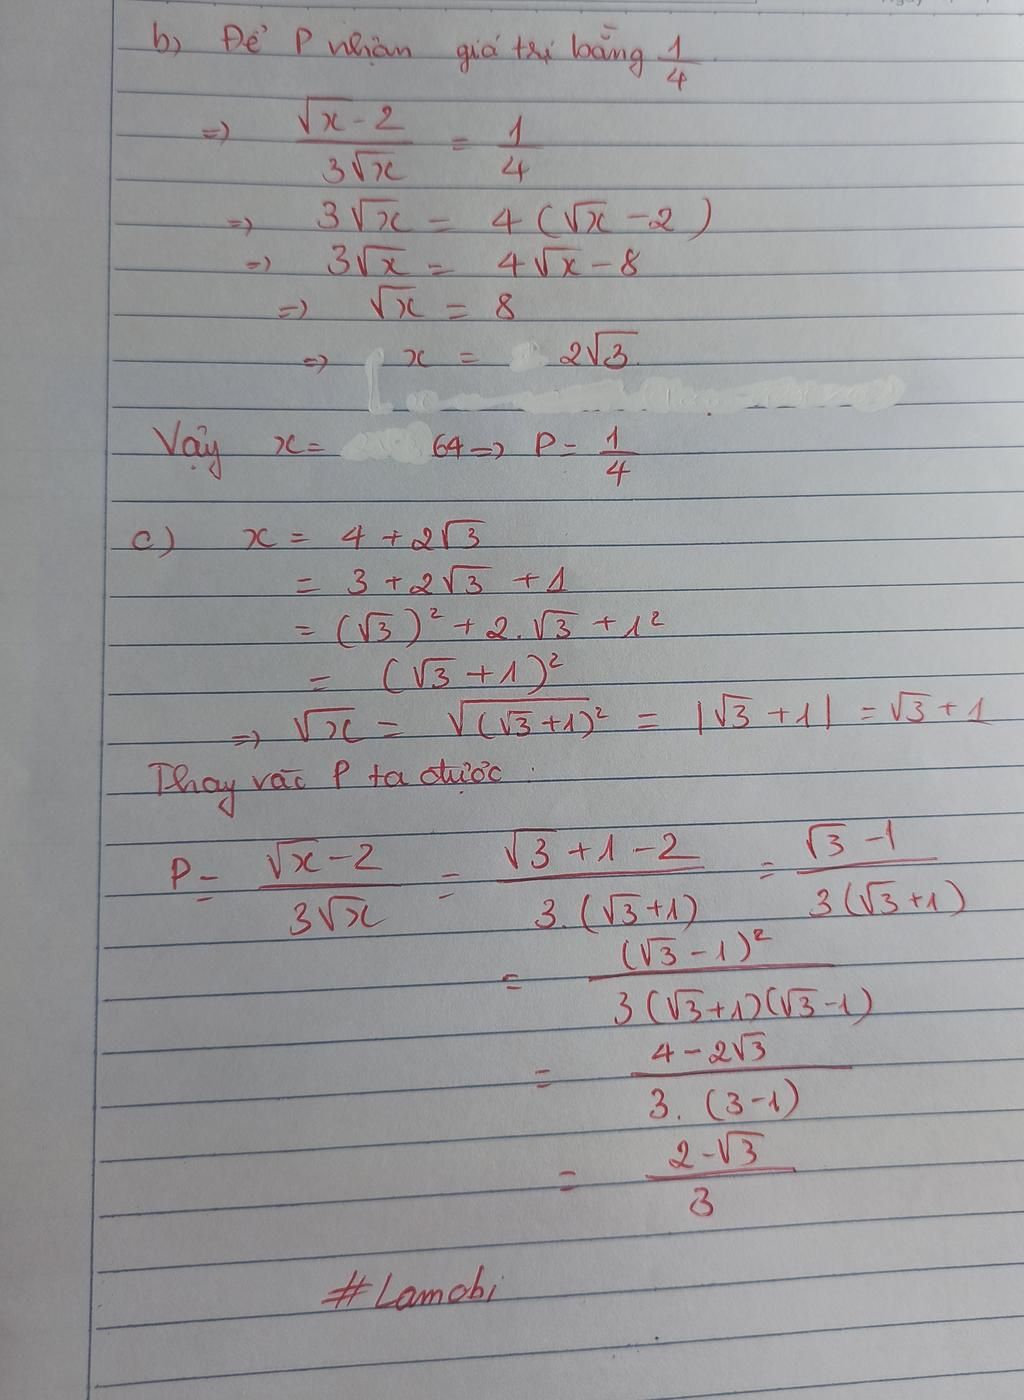 b) Để P nhận giá trị bằng 1/4
=> (√x - 2)/(3√x) = 1/4
=> 3√x = 4(√x - 2)
=> 3√x = 4√x - 8
=> √x = 8
=> x = 2√3
Vậy x = 64 => P = 1/4
c) x = 4 + 2√3
= 3 + 2√3 + 1
= (√3)² + 2.√3 + 1²
= (√3 + 1)²
=> √x = √(√3+1)² = |√3 + 1| = √3 + 1
Thay vào P ta được :
P = (√x - 2)/(3√x) = (√3 + 1 - 2)/(3.(√3+1)) = (√3 - 1)/(3(√3+1))
= (√3 - 1)²/(3(√3+1)(√3-1))
= (4 - 2√3)/(3. (3-1))
= (2-√3)/3
#Lamobi